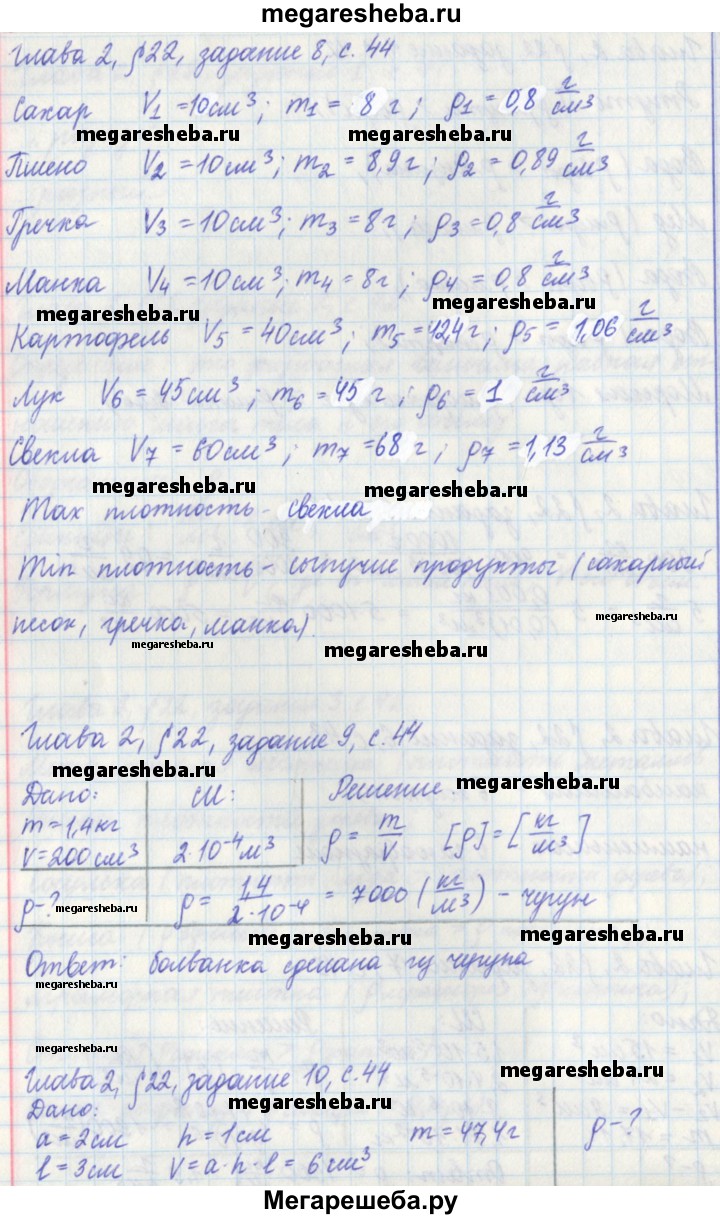 megaresheba.ru
Глава 2, §22, задание 8, с. 44
Сахар V₁ = 10см³; m₁ = 8 г; ρ₁ = 0,8 г/см³
megaresheba.ru megaresheba.ru
Пшено V₂ = 10см³; m₂ = 8,9г; ρ₂ = 0,89 г/см³
Гречка V₃ = 10см³; m₃ = 8г; ρ₃ = 0,8 г/см³
Манка V₄ = 10см³; m₄ = 8г; ρ₄ = 0,8 г/см³
megaresheba.ru megaresheba.ru
Картофель V₅ = 40см³; m₅ = 42,4г; ρ₅ = 1,06 г/см³
Лук V₆ = 45см³; m₆ = 45 г; ρ₆ = 1 г/см³
Свекла V₇ = 60см³; m₇ = 68 г; ρ₇ = 1,13 г/см³
megaresheba.ru megaresheba.ru
Max плотность - свекла
Min плотность - сыпучие продукты (сахарный
megaresheba.ru
песок, гречка, манка)
megaresheba.ru megaresheba.ru
Глава 2, §22, задание 9, с. 44
megaresheba.ru megaresheba.ru
Дано: СИ: Решение:
m = 1,4кг ρ = m/V [ρ] = [кг/м³]
V = 200см³ 2·10⁻⁴м³
ρ-? ρ = 1,4/2·10⁻⁴ = 7000 (кг/м³) - чугун
megaresheba.ru megaresheba.ru megaresheba.ru
Ответ: болванка сделана из чугуна
megaresheba.ru
megaresheba.ru megaresheba.ru
Глава 2, §22, задание 10, с. 44
megaresheba.ru megaresheba.ru
Дано:
a = 2см h = 1см m = 47,4г ρ-?
l = 3см V = a·h·l = 6см³
megaresheba.ru megaresheba.ru
Мегарешеба.ру